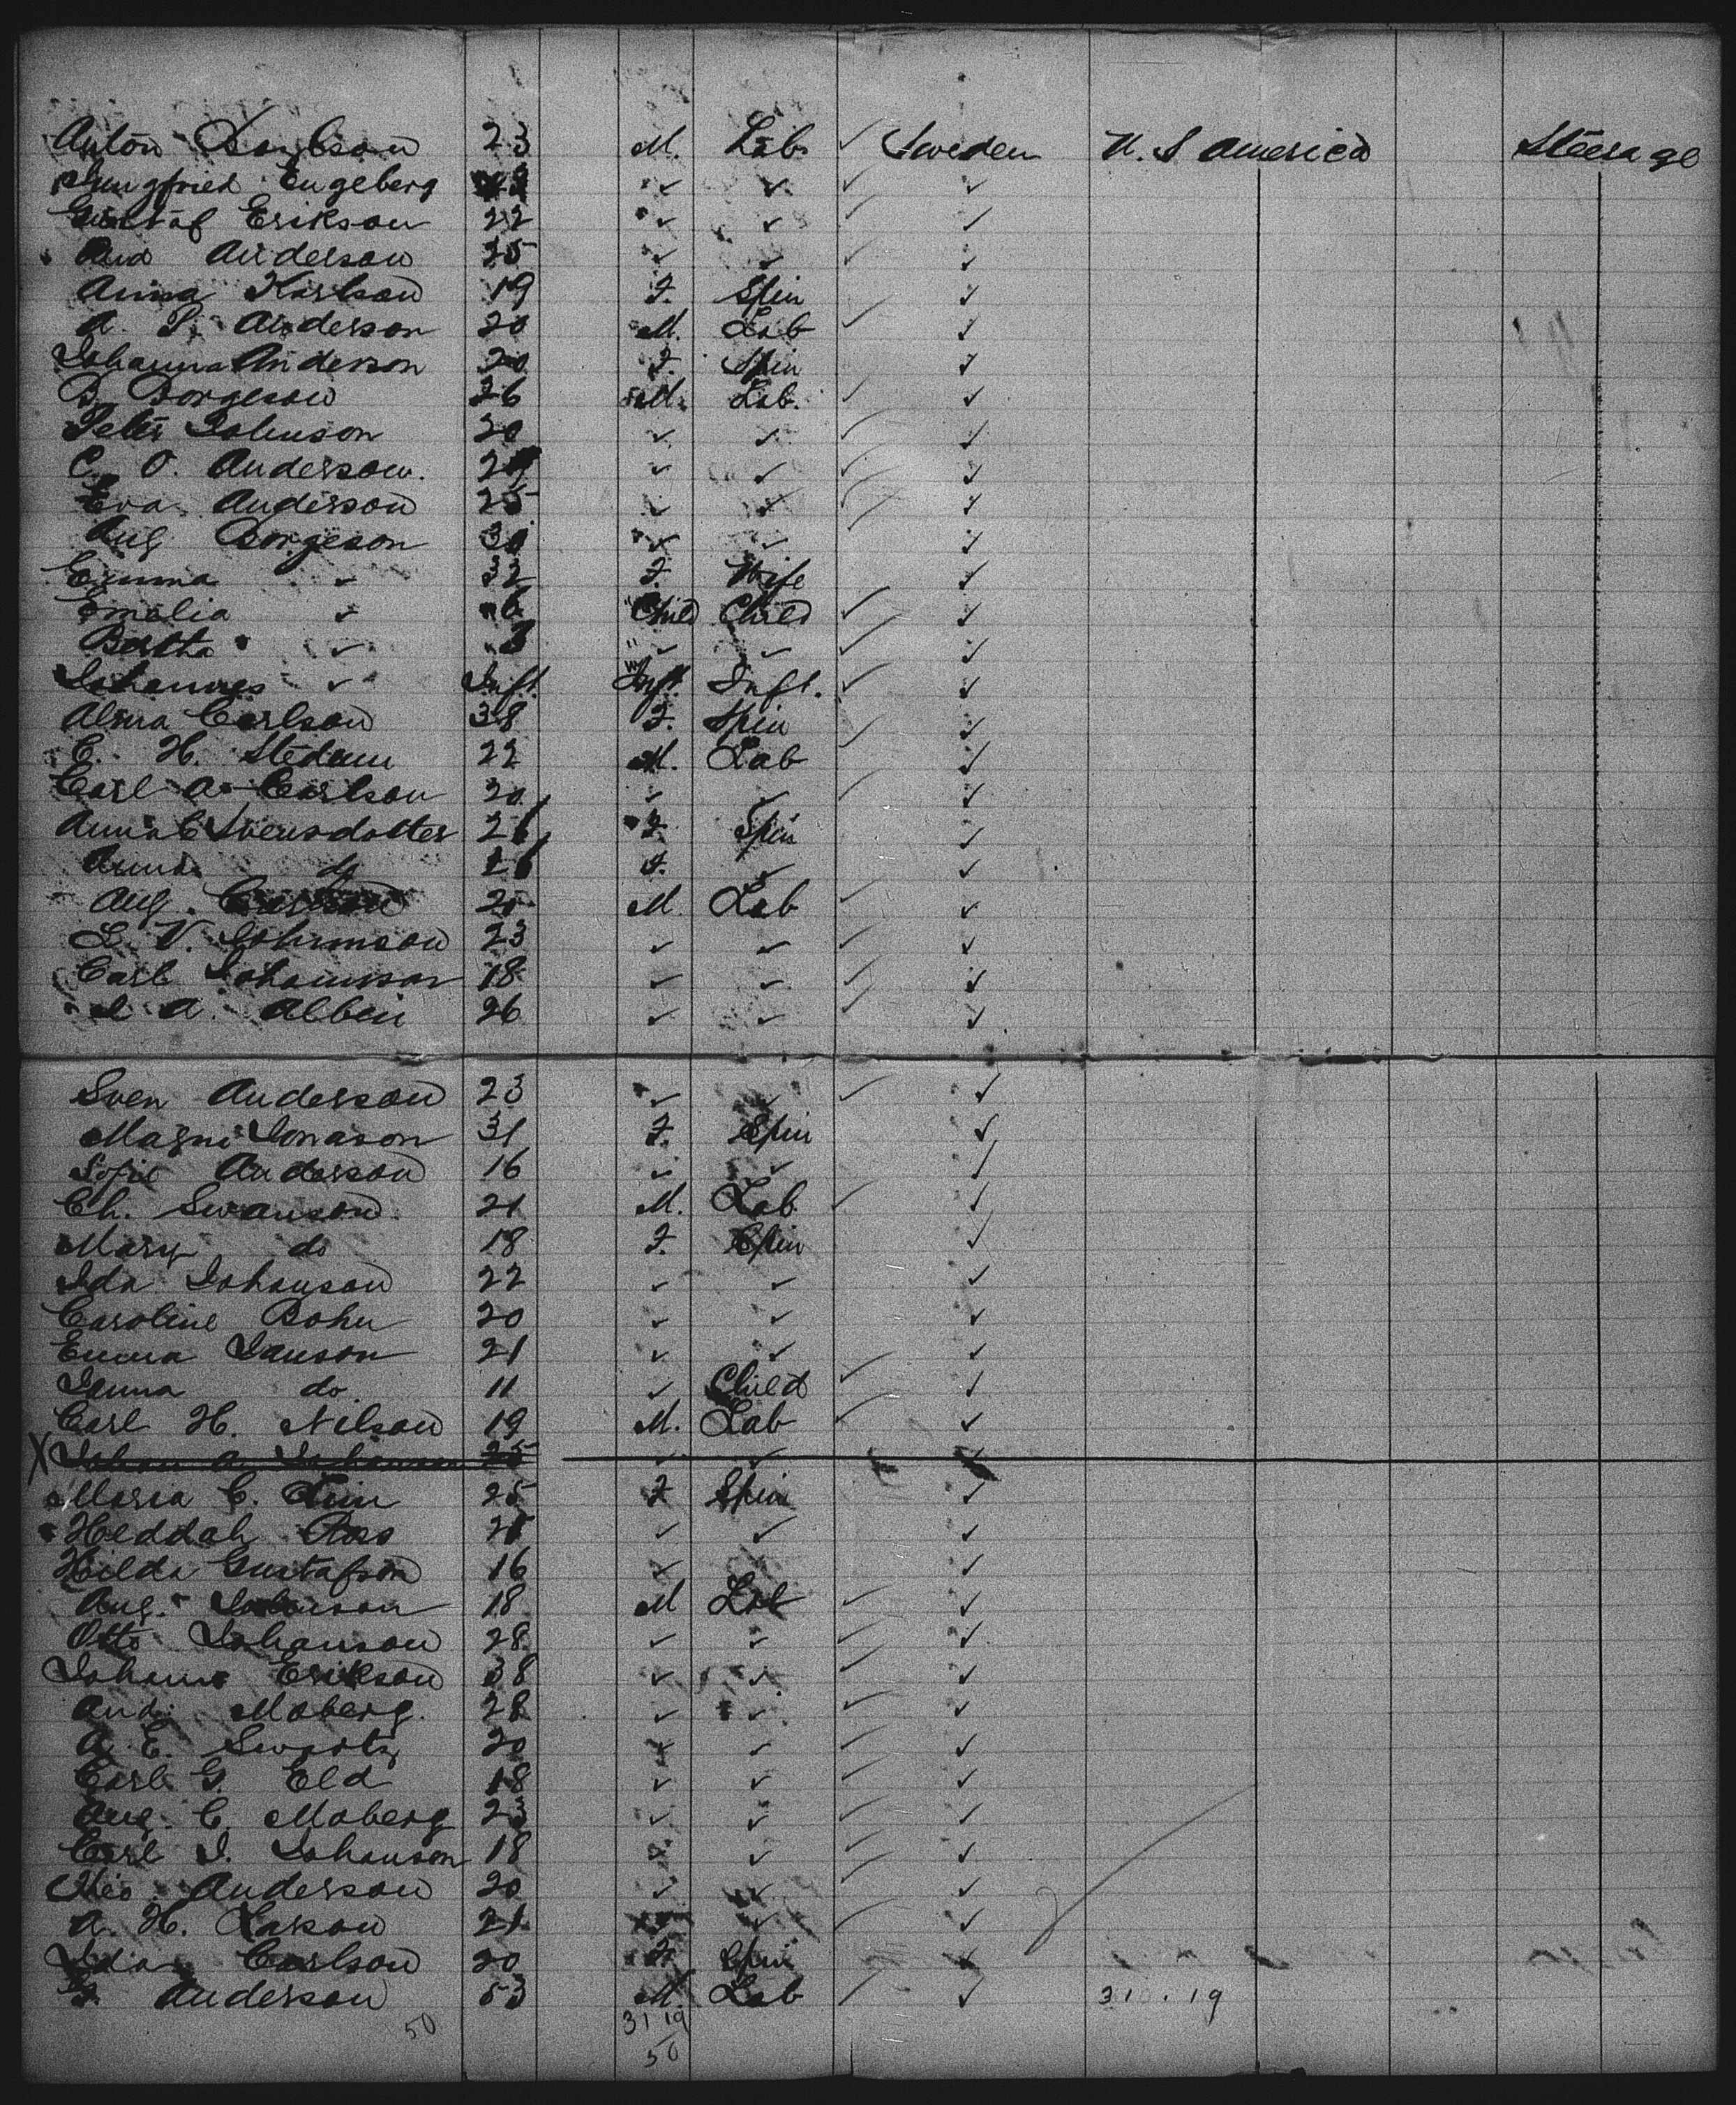 Anton 23 M. Lab. ✓ Sweden U. S America Steerage
Engeberg ✓ ✓ ✓ ✓
Gustaf Erikson 22 ✓ ✓ ✓ ✓
And Anderson 25 ✓ ✓ ✓ ✓
Anna Karlson 19 F. Spin ✓
A. P. Anderson 20 M. Lab ✓ ✓
Johanna Anderson 20 F. Spin ✓
B. Borgeson 26 M. Lab. ✓ ✓
Peter Johnson 20 ✓ ✓ ✓ ✓
C. O. Anderson. ✓ ✓ ✓ ✓
Eva Anderson 25 ✓ ✓ ✓ ✓
Aug Borgeson 30 ✓ ✓ ✓
Emma ✓ 32 F. Wife ✓
Emelia ✓ 6 Child Child ✓ ✓
Bertha ✓ 3 " ✓ ✓ ✓ ✓
Johannes ✓ Inft. Inft. Inft. ✓ ✓
Alma Carlson 38 F. Spin ✓ ✓
E. H. Stedam 22 M. Lab ✓
Carl A. Carlson 20 ✓ ✓ ✓ ✓
Anna C Svensdotter 26 F. Spin ✓
Anna do 26 F. ✓ ✓
Aug. 20 M Lab ✓ ✓
L. V. Johnmson 23 ✓ ✓ ✓ ✓
Carl Johannson 18 ✓ ✓ ✓ ✓
A. Albin 26 ✓ ✓ ✓ ✓
Sven Anderson 23 ✓ ✓ ✓ ✓
Magni Jonason 31 F. Spin ✓
Sofie Anderson 16 ✓ ✓ ✓
Ch. Swanson 21 M. Lab. ✓ ✓
Mary do 18 F. Spin ✓
Ida Johanson 22 ✓ ✓ ✓
Caroline Bohn 20 ✓ ✓ ✓
Emma Janson 21 ✓ ✓ ✓
Janna do 11 ✓ Child ✓ ✓
Carl H. Nilson 19 M. Lab ✓ ✓
X 25 ✓ ✓
Maria C. 25 F Spin ✓
Heddah ✓ ✓ ✓
Hilda Gustafson 16 ✓ ✓
Aug. Johnson 18 M Lab ✓ ✓
Otto Johanson 28 ✓ ✓ ✓ ✓
Johann Erikson 38 ✓ ✓ ✓ ✓
And. Moberg. 28 ✓ ✓ ✓ ✓
A. E. Swartz 20 ✓ ✓ ✓ ✓
Carl G. Eld 18 ✓ ✓ ✓ ✓
Aug. C. Moberg 23 ✓ ✓ ✓ ✓
Carl J. Johanson 18 ✓ ✓ ✓ ✓
Anderson 20 ✓ ✓ ✓ ✓
A. H. Larson 21 ✓ ✓ ✓ ✓
Ida Carlson 20 F. Spin ✓
Anderson 53 M. Lab ✓ ✓ 31 . 19
50 31 19
50